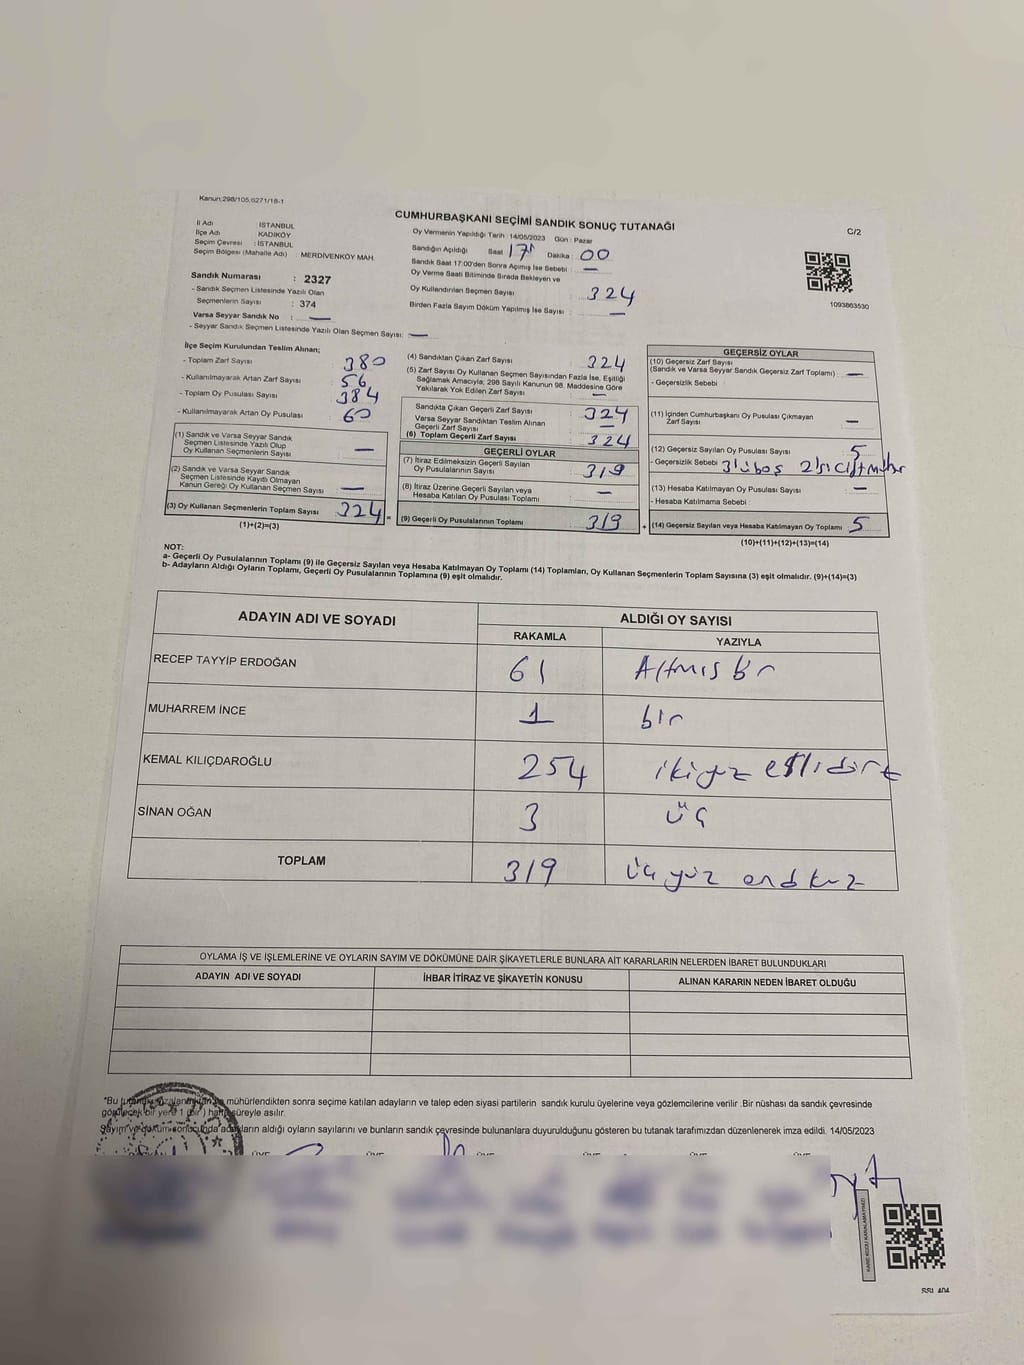 Kanun;298/105,6271/18-1
CUMHURBAŞKANI SEÇİMİ SANDIK SONUÇ TUTANAĞI
C/2
İl Adı : İSTANBUL
İlçe Adı : KADIKÖY
Seçim Çevresi : İSTANBUL
Seçim Bölgesi (Mahalle Adı) : MERDİVENKÖY MAH.
Sandık Numarası : 2327
- Sandık Seçmen Listesinde Yazılı Olan
Seçmenlerin Sayısı : 374
Varsa Seyyar Sandık No : —
- Seyyar Sandık Seçmen Listesinde Yazılı Olan Seçmen Sayısı: —
Oy Vermenin Yapıldığı Tarih : 14/05/2023 Gün : Pazar
Sandığın Açıldığı Saat 17 Dakika : 00
Sandık Saat 17:00'den Sonra Açımış İse Sebebi : —
Oy Verme Saati Bitiminde Sırada Bekleyen ve
Oy Kullandırılan Seçmen Sayısı : 324
Birden Fazla Sayım Döküm Yapılmış İse Sayısı : —
1093863530
İlçe Seçim Kurulundan Teslim Alınan;
- Toplam Zarf Sayısı 380
- Kullanılmayarak Artan Zarf Sayısı : 56
- Toplam Oy Pusulası Sayısı 384
- Kullanılmayarak Artan Oy Pusulası 60
(1) Sandık ve Varsa Seyyar Sandık
Seçmen Listesinde Yazılı Olup
Oy Kullanan Seçmenlerin Sayısı : —
(2) Sandık ve Varsa Seyyar Sandık
Seçmen Listesinde Kayıtlı Olmayan
Kanun Gereği Oy Kullanan Seçmen Sayısı : —
(3) Oy Kullanan Seçmenlerin Toplam Sayısı 324 =
(1)+(2)=(3)
(4) Sandıktan Çıkan Zarf Sayısı : 324
(5) Zarf Sayısı Oy Kullanan Seçmen Sayısından Fazla İse, Eşitliği
Sağlamak Amacıyla; 298 Sayılı Kanunun 98. Maddesine Göre
Yakılarak Yok Edilen Zarf Sayısı : —
Sandıkta Çıkan Geçerli Zarf Sayısı : 324
Varsa Seyyar Sandıktan Teslim Alınan
Geçerli Zarf Sayısı : —
(6) Toplam Geçerli Zarf Sayısı : 324
GEÇERLİ OYLAR
(7) İtiraz Edilmeksizin Geçerli Sayılan
Oy Pusulasının Sayısı : 319
(8) İtiraz Üzerine Geçerli Sayılan veya
Hesaba Katılan Oy Pusulası Toplamı : —
(9) Geçerli Oy Pusulalarının Toplamı : 319 +
GEÇERSİZ OYLAR
(10) Geçersiz Zarf Sayısı
(Sandık ve Varsa Seyyar Sandık Geçersiz Zarf Toplamı) : —
- Geçersizlik Sebebi :
(11) İçinden Cumhurbaşkanı Oy Pusulası Çıkmayan
Zarf Sayısı : —
(12) Geçersiz Sayılan Oy Pusulası Sayısı : 5
- Geçersizlik Sebebi : 3'ü boş 2'si çift mühür
(13) Hesaba Katılmayan Oy Pusulası Sayısı : —
- Hesaba Katılmama Sebebi :
(14) Geçersiz Sayılan veya Hesaba Katılmayan Oy Toplamı 5
(10)+(11)+(12)+(13)=(14)
NOT:
a- Geçerli Oy Pusulalarının Toplamı (9) ile Geçersiz Sayılan veya Hesaba Katılmayan Oy Toplamı (14) Toplamları, Oy Kullanan Seçmenlerin Toplam Sayısına (3) eşit olmalıdır. (9)+(14)=(3)
b- Adayların Aldığı Oyların Toplamı, Geçerli Oy Pusulalarının Toplamına (9) eşit olmalıdır.
ADAYIN ADI VE SOYADI ALDIĞI OY SAYISI
RAKAMLA YAZIYLA
RECEP TAYYİP ERDOĞAN 61 Altmış bir
MUHARREM İNCE 1 bir
KEMAL KILIÇDAROĞLU 254 ikiyüz ellidört
SİNAN OĞAN 3 üç
TOPLAM 319 üçyüz ondokuz
OYLAMA İŞ VE İŞLEMLERİNE VE OYLARIN SAYIM VE DÖKÜMÜNE DAİR ŞİKAYETLERLE BUNLARA AİT KARARLARIN NELERDEN İBARET BULUNDUKLARI
ADAYIN ADI VE SOYADI İHBAR İTİRAZ VE ŞİKAYETİN KONUSU ALINAN KARARIN NEDEN İBARET OLDUĞU
*Bu mühürlendikten sonra seçime katılan adayların ve talep eden siyasi partilerin sandık kurulu üyelerine veya gözlemcilerine verilir .Bir nüshası da sandık çevresinde
görülecek bir yere 1 (bir ) hafta süreyle asılır.
Sayım ve döküm sonucunda adayların aldığı oyların sayılarını ve bunların sandık çevresinde bulunanlara duyurulduğunu gösteren bu tutanak tarafımızdan düzenlenerek imza edildi. 14/05/2023
KARE KODU KARALAMAYINIZ!